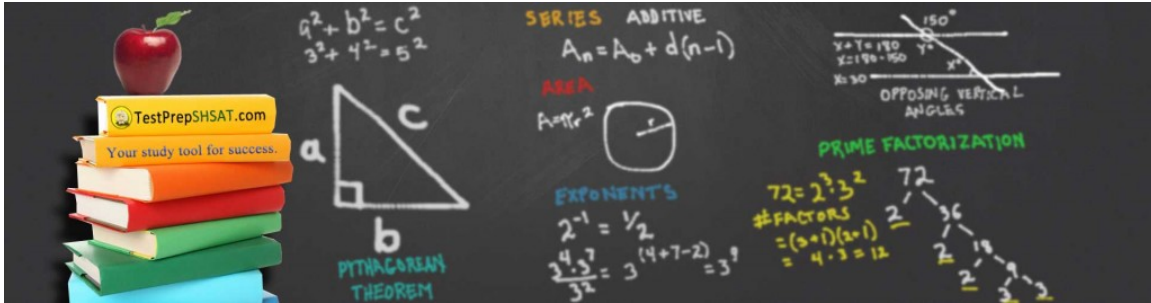 TestPrepSHSAT.com
Your study tool for success.
a² + b² = c²
3² + 4² = 5²
a
c
b
PYTHAGOREAN
THEOREM
SERIES ADDITIVE
Aₙ = A₀ + d(n-1)
AREA
A=πr²
r
EXPONENTS
2⁻¹ = ½
3⁴·3⁷
3²
= 3⁽⁴⁺⁷⁻²⁾ = 3⁹
150°
X+Y=180
X=180-150
X=30
Y°
X°
OPPOSING VERTICAL
ANGLES
PRIME FACTORIZATION
72=2³·3²
#FACTORS
=(3+1)(2+1)
= 4·3=12
72
2 36
2 18
2 9
3 3